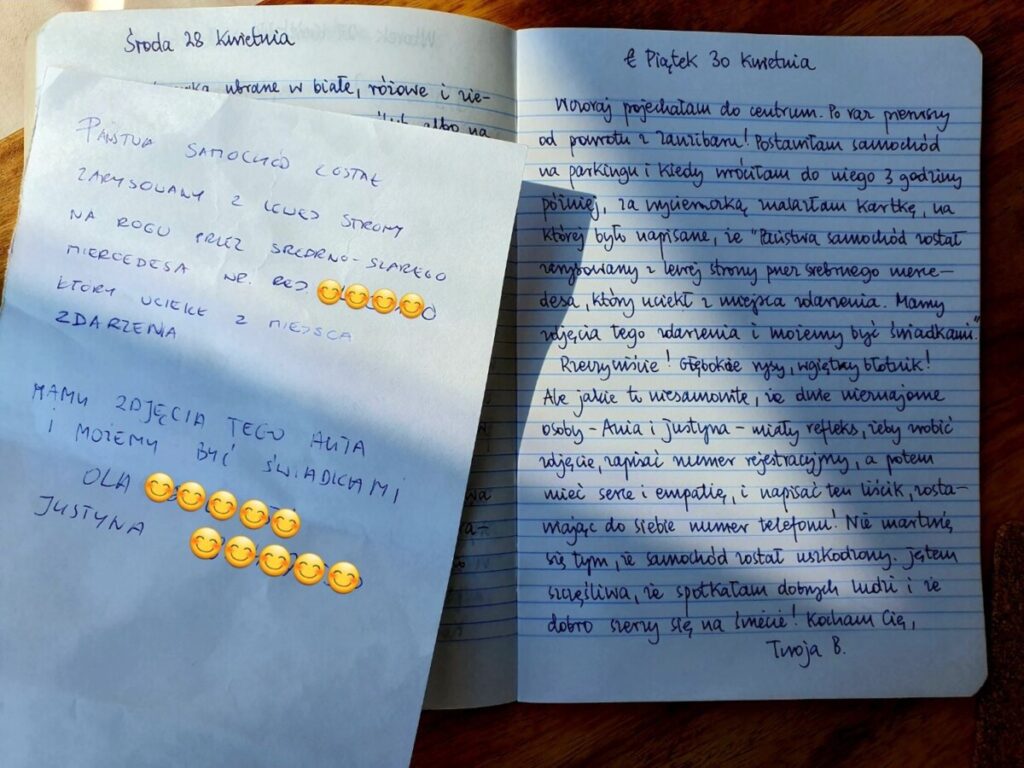 Środa 28 Kwietnia
ubrane w białe, różowe i zie-
albo na
PAŃSTWA SAMOCHÓD ZOSTAŁ
ZARYSOWANY Z LEWEJ STRONY
NA ROGU PRZEZ SREBRNO-SZAREGO
MERCEDESA NR. REJ
KTÓRY UCIEKŁ Z MIEJSCA
ZDARZENIA
MAMY ZDJĘCIA TEGO AUTA
I MOŻEMY BYĆ ŚWIADKAMI
OLA
JUSTYNA
Piątek 30 Kwietnia
Wczoraj pojechałam do centrum. Po raz pierwszy
od powrotu z Zanzibaru! Postawiłam samochód
na parkingu i kiedy wróciłam do niego 3 godziny
później, za wycieraczką znalazłam kartkę, na
której było napisane, że "Państwa samochód został
zarysowany z lewej strony przez srebrnego merce-
desa, który uciekł z miejsca zdarzenia. Mamy
zdjęcia tego zdarzenia i możemy być świadkami."
Rzeczywiście! Głębokie rysy, wgięty błotnik!
Ale jakie to niesamowite, że dwie nieznajome
osoby - Ania i Justyna - miały refleks, żeby zrobić
zdjęcie, zapisać numer rejestracyjny, a potem
mieć serce i empatię, i napisać ten liścik, zosta-
wiając do siebie numer telefonu! Nie martwię
się tym, że samochód został uszkodzony. Jestem
szczęśliwa, że spotkałam dobrych ludzi i że
dobro szerzy się na świecie! Kocham Cię,
Twoja B.